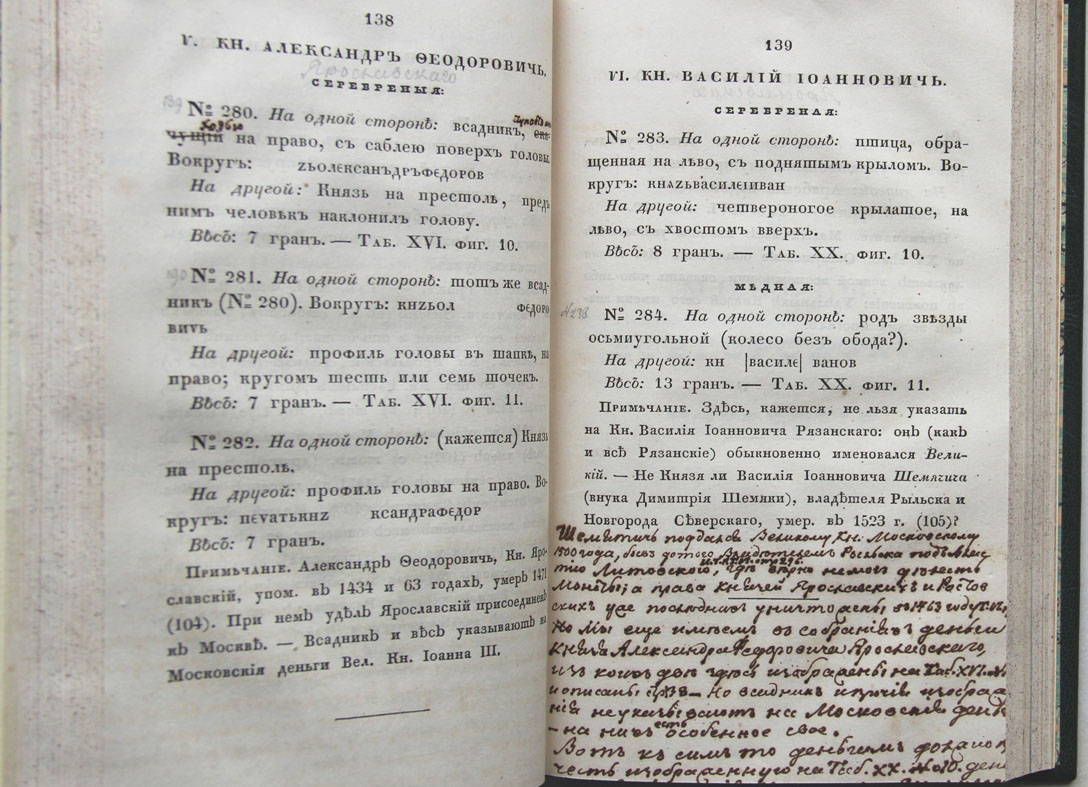 138
V. КН. АЛЕКСАНДРЪ ѲЕОДОРОВИЧЬ.
Ярославскаго
СЕРЕБРЕНЫЯ:
№ 280. На одной сторонѣ: всадникъ,
на право, съ саблею поверхъ головы
Вокругъ: ZЬОЛЕКСАНДРЪФЕДОРОВ
На другой: Князь на престолѣ, предъ
нимъ человѣкъ наклонилъ голову.
Вѣсъ: 7 гранъ. — Таб. XVI. фиг. 10.
190
№ 281. На одной сторонѣ: тотъ же всад-
никъ (№ 280). Вокругъ: КНZЬОЛ ФЕДОРО
ВИТЬ
На другой: профиль головы въ шапкѣ, на
право; кругомъ шесть или семь точекъ.
Вѣсъ: 7 гранъ. — Таб. XVI. фиг. 11.
№ 282. На одной сторонѣ: (кажется) Князь
на престолѣ.
На другой: профиль головы на право. Во-
кругъ: ПЕЧАТЬКНZ КСАНДРАФЕДОР
Вѣсъ: 7 гранъ.
Примѣчаніе. Александръ Ѳеодоровичь, Кн. Яро-
славскій, упом. въ 1434 и 63 годахъ, умеръ 1471
(104). При немъ удѣлъ Ярославскій присоединенъ
къ Москвѣ. — Всадникъ и вѣсъ указываютъ на
Московскія деньги Вел. Кн. Іоанна III.
139
VI. КН. ВАСИЛІЙ ІОАННОВИЧЬ.
СЕРЕБРЕНАЯ:
№ 283. На одной сторонѣ: птица, обра-
щенная на лѣво, съ поднятымъ крыломъ. Во-
кругъ: КНѦZЬВАСИЛЕIИВАН
На другой: четвероногое крылатое, на
лѣво, съ хвостомъ вверхъ.
Вѣсъ: 8 гранъ. — Таб. XX. фиг. 10.
МѢДНАЯ:
№ 284. На одной сторонѣ: родъ звѣзды
осьмиугольной (колесо безъ обода?).
На другой: КН |ВАСИЛЕ| ВАНОВ
Вѣсъ: 13 гранъ. — Таб. XX. фиг. 11.
Примѣчаніе. Здѣсь, кажется, не льзя указать
на Кн. Василія Іоанновича Рязанскаго: онъ (какъ
и всѣ Рязанскіе) обыкновенно именовался Вели-
кій. — Не Князя ли Василія Іоанновича Шемячича
(внука Димитрія Шемяки), владѣтеля Рыльска и
Новгорода Сѣверскаго, умер. въ 1523 г. (105)?
Шемятичь поддался Великому Кн. Московскому
1500 года, бывъ до того
Литовской,
монеты; а права Князей Ярославскихъ и Ростов
скихъ уже последние уничтожены въ 1463 году.
Но мы еще имѣемъ въ собранияхъ деньги
Князя Александра Федоровича Ярославскаго,
изъ коихъ две здѣсь изображены на Таб. XVI.
и описаны стр. 138 — Но всадникъ и прочие изображе
ния не указываютъ на Московские деньги
— на нихъ есть особенное свое.
Вотъ къ симъ то деньгамъ
честь изображенную на Таб. XX. № 10.